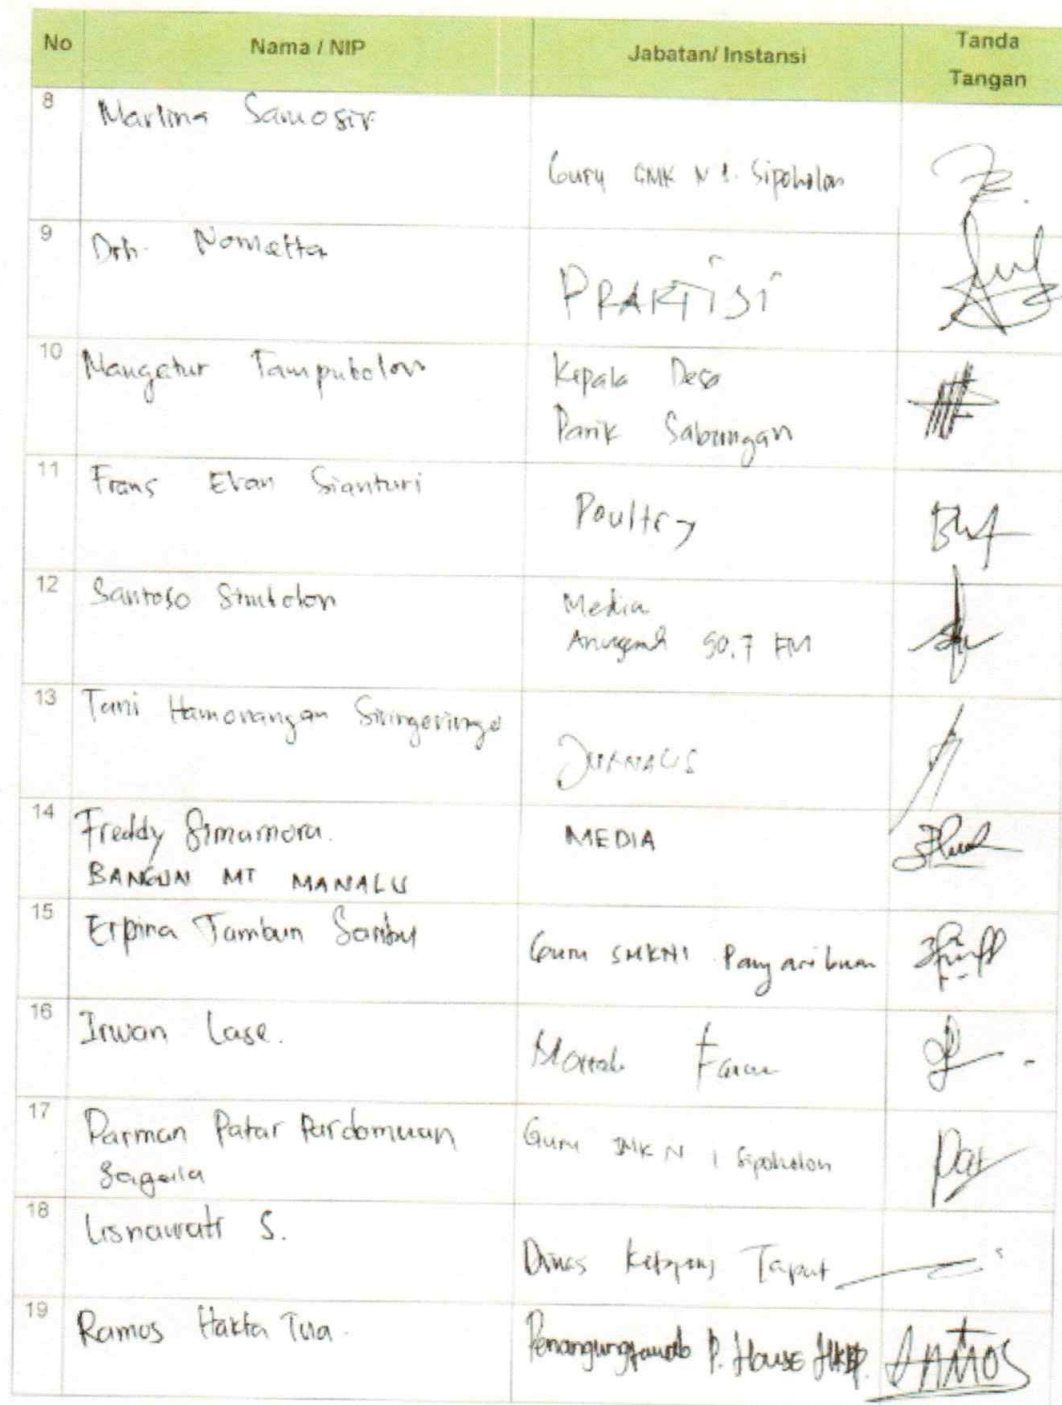 No Nama / NIP Jabatan/ Instansi Tanda Tangan
8 Marlina Samosir Guru SMK N 1. Sipoholon
9 Drh. Nomatta PRAKTISI
10 Mangatur Tampubolon Kepala Desa
Parik Sabungan
11 Frans Evan Sianturi Poultry
12 Santoso Simbolon Media
Anugerah 90.7 FM
13 Tani Hamonangan Siringoringo JURNALIS
14 Freddy Simamora. MEDIA
BANGUN MT MANALU
15 Erpina Tambun Saribu Guru SMKN1 Pangaribuan
16 Irwan Lase. Farm
17 Parman Patar Pardomuan Guru SMK N 1 Sipoholon
18 Lisnawati S. Dinas Ketapang Taput
19 Ramos Hakta Tua. Penangungjawab P. House HKBP.